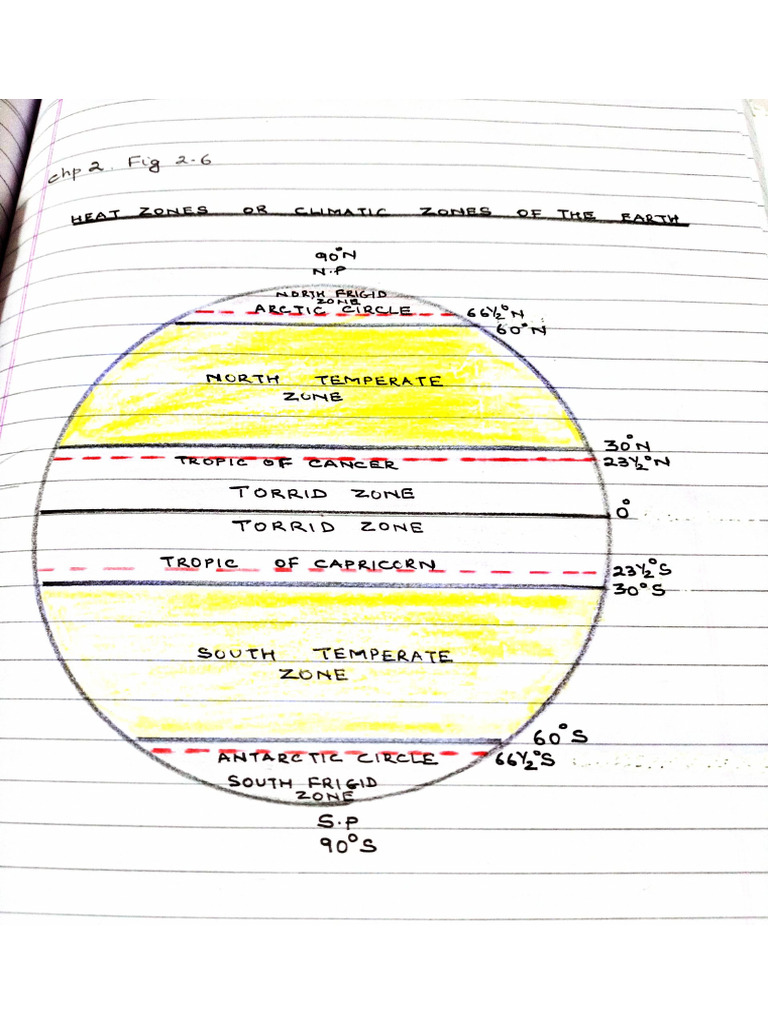 Chp 2. Fig 2.6
HEAT ZONES OR CLIMATIC ZONES OF THE EARTH
90°N
N.P
NORTH FRIGID
ZONE
ARCTIC CIRCLE 66½°N
60°N
NORTH TEMPERATE
ZONE
30°N
TROPIC OF CANCER 23½°N
TORRID ZONE
0°
TORRID ZONE
TROPIC OF CAPRICORN 23½°S
30°S
SOUTH TEMPERATE
ZONE
60°S
ANTARCTIC CIRCLE 66½°S
SOUTH FRIGID
ZONE
S.P
90°S